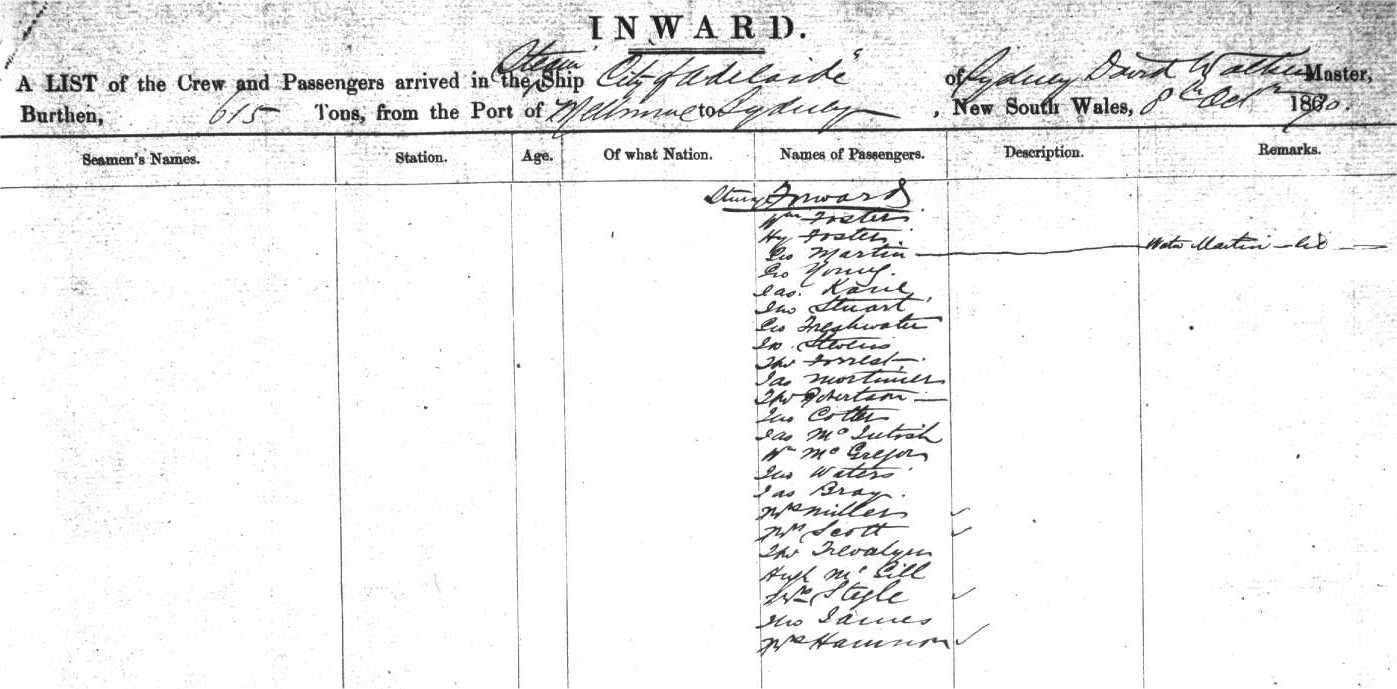 INWARD.
Steam
A LIST of the Crew and Passengers arrived in the Ship "City of Adelaide" of Sydney David Walker Master,
Burthen, 615 Tons, from the Port of Melbourne to Sydney, New South Wales, 8th Octr 1870.
Seamen's Names. Station. Age. Of what Nation. Names of Passengers. Description. Remarks.
Forward
Wm Foster
Hy Foster
Geo Martin — Martin —
Geo Young.
Jas. Kane
Jno Stuart
Geo Freshwater
Stevens
Thos Forrest
Jas Mortimer
Thos Robertson —
Jno Cotter
Jas McIntosh
Wm McGregor
Jno Waters
Jas Bray.
Mrs Miller ✓
Mrs Scott ✓
Thos
Hugh McGill
Mrs Steyle ✓
Jno James
Mrs Harrison ✓